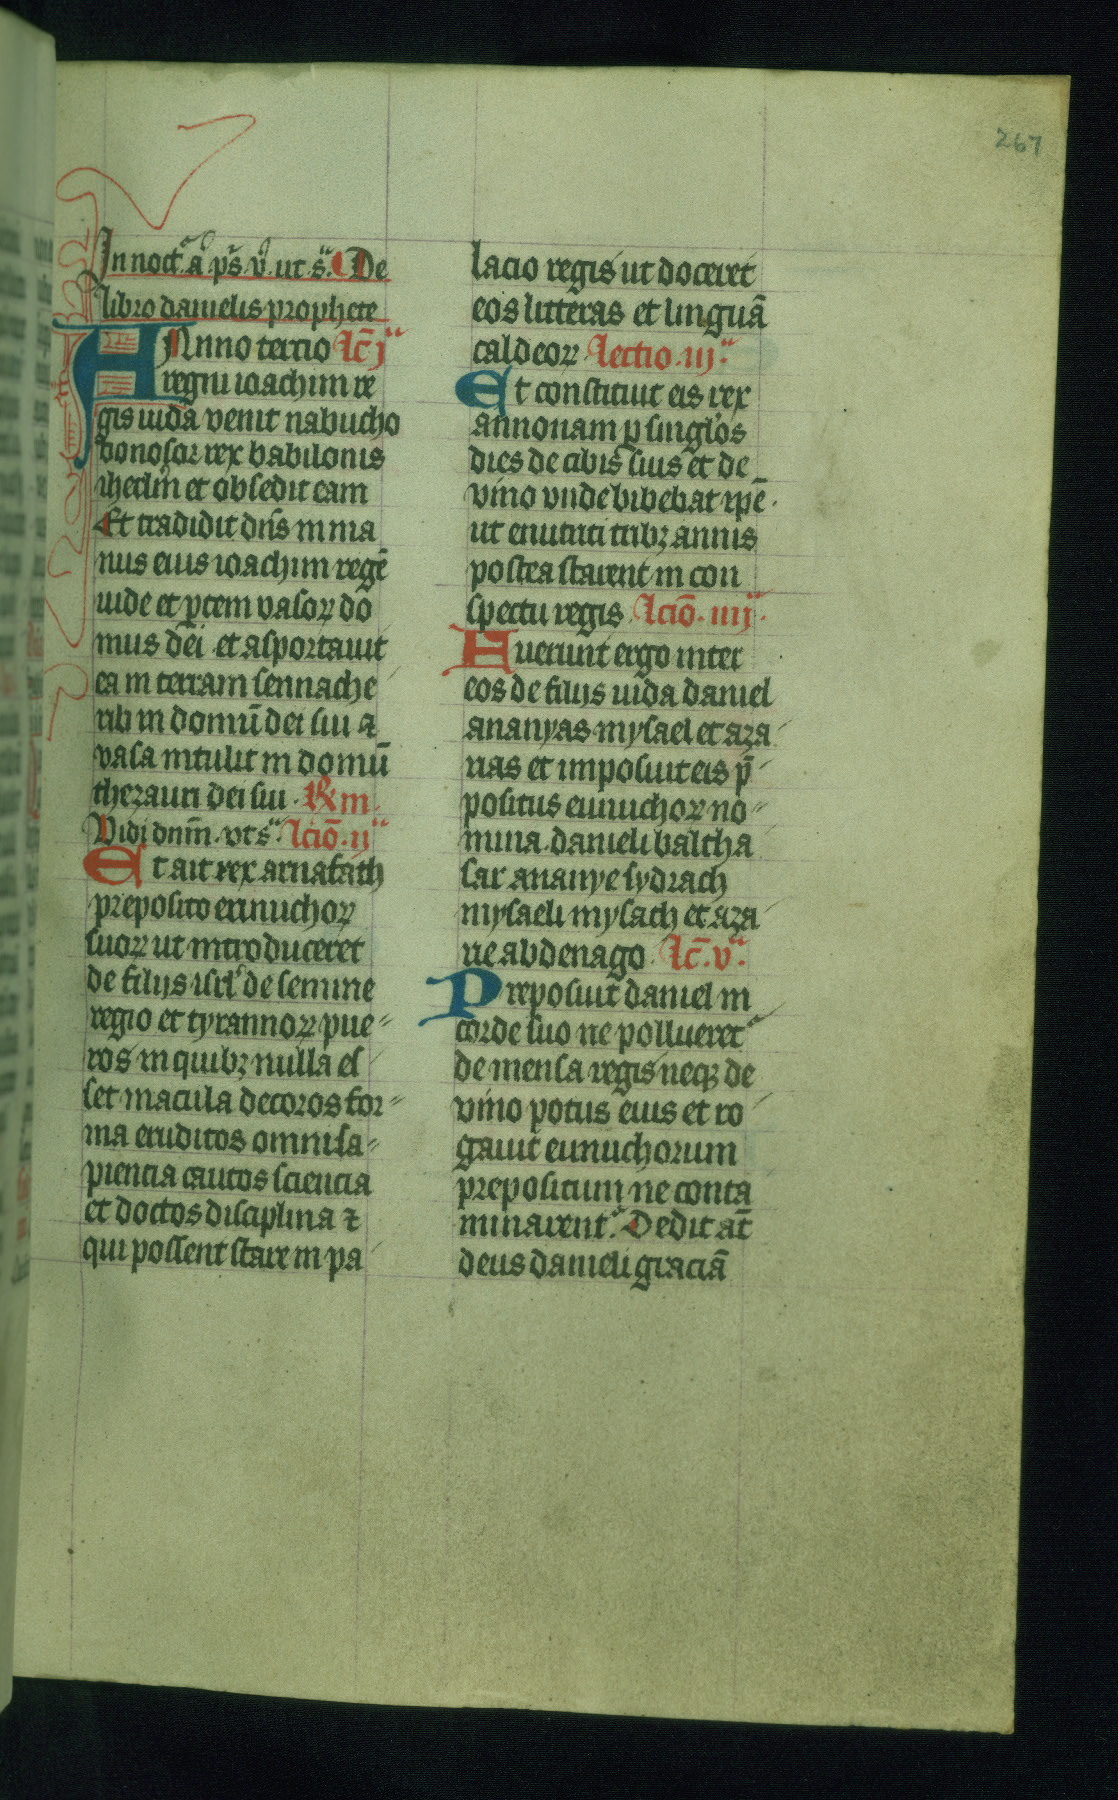 267
In noct͛. a͛ ps̄ v̊. ut s͛. De
libro danielis prophete
ANno tercio lc̄ j͛
regni ioachim re
gis iuda venit nabucho
donosor rex babilonis
iherl̄m et obsedit eam
Et tradidit dn̄s in ma
nus eius ioachim regē
iude et ꝑtem vasoꝝ do
mus dei et asportauit
ea in terram sennache
rib in domū dei sui ⁊
vasa intulit in domū
thezauri dei sui. ℟m.
Vidi dnm̄. vt s͛. lcio̅. ij͛
Et ait rex arnafath
preposito eunuchoꝝ
suoꝝ ut introduceret
de filijs isrl̓ de semine
regio et tyrannoꝝ pue
ros in quibꝫ nulla es
set macula decoros for
ma eruditos omni sa
piencia cautos sciencia
et doctos disciplina ⁊
qui possent stare in pa
lacio regis ut doceret
eos litteras et linguā
caldeoꝝ lectio. iij͛
Et constituit eis rex
annonam ꝑ singl̓os
dies de cibis suis et de
vino vnde bibebat ipē.
ut enutriti tribꝫ annis
postea starent in con
spectu regis lcio̅. iiij͛.
Fuerunt ergo inter
eos de filijs iuda daniel
ananyas mysael et aza
rias et imposuit eis p̄
positus eunuchoꝝ no
mina. danieli baltha
sar ananye sydrach
mysaeli mysach et aza
rie abdenago. lc̄. v͛.
Preposuit daniel in
corde suo ne pollueret͛
de mensa regis neqꝫ de
vino potus eius et ro
gauit eunuchorum
prepositum ne conta
minarent͛. Dedit at̄
deus danieli graciā